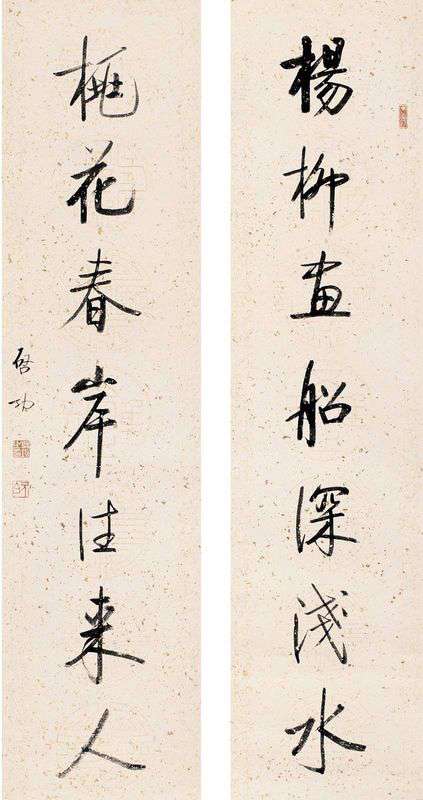 楊柳画船深淺水
桃花春岸往來人
啓功